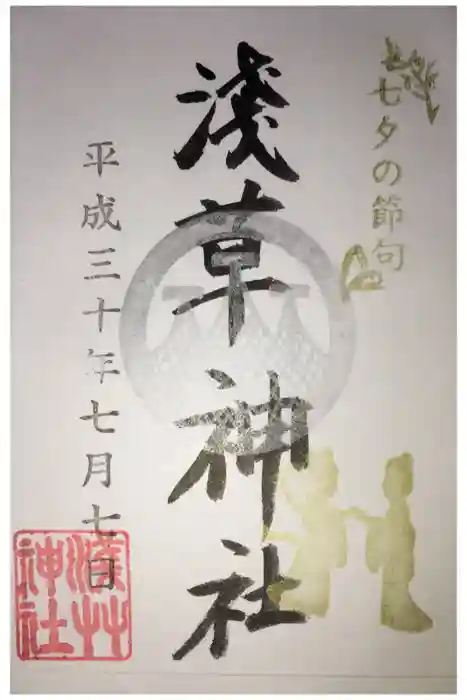 七夕の節句
淺草神社
平成三十年七月七日
淺草神社